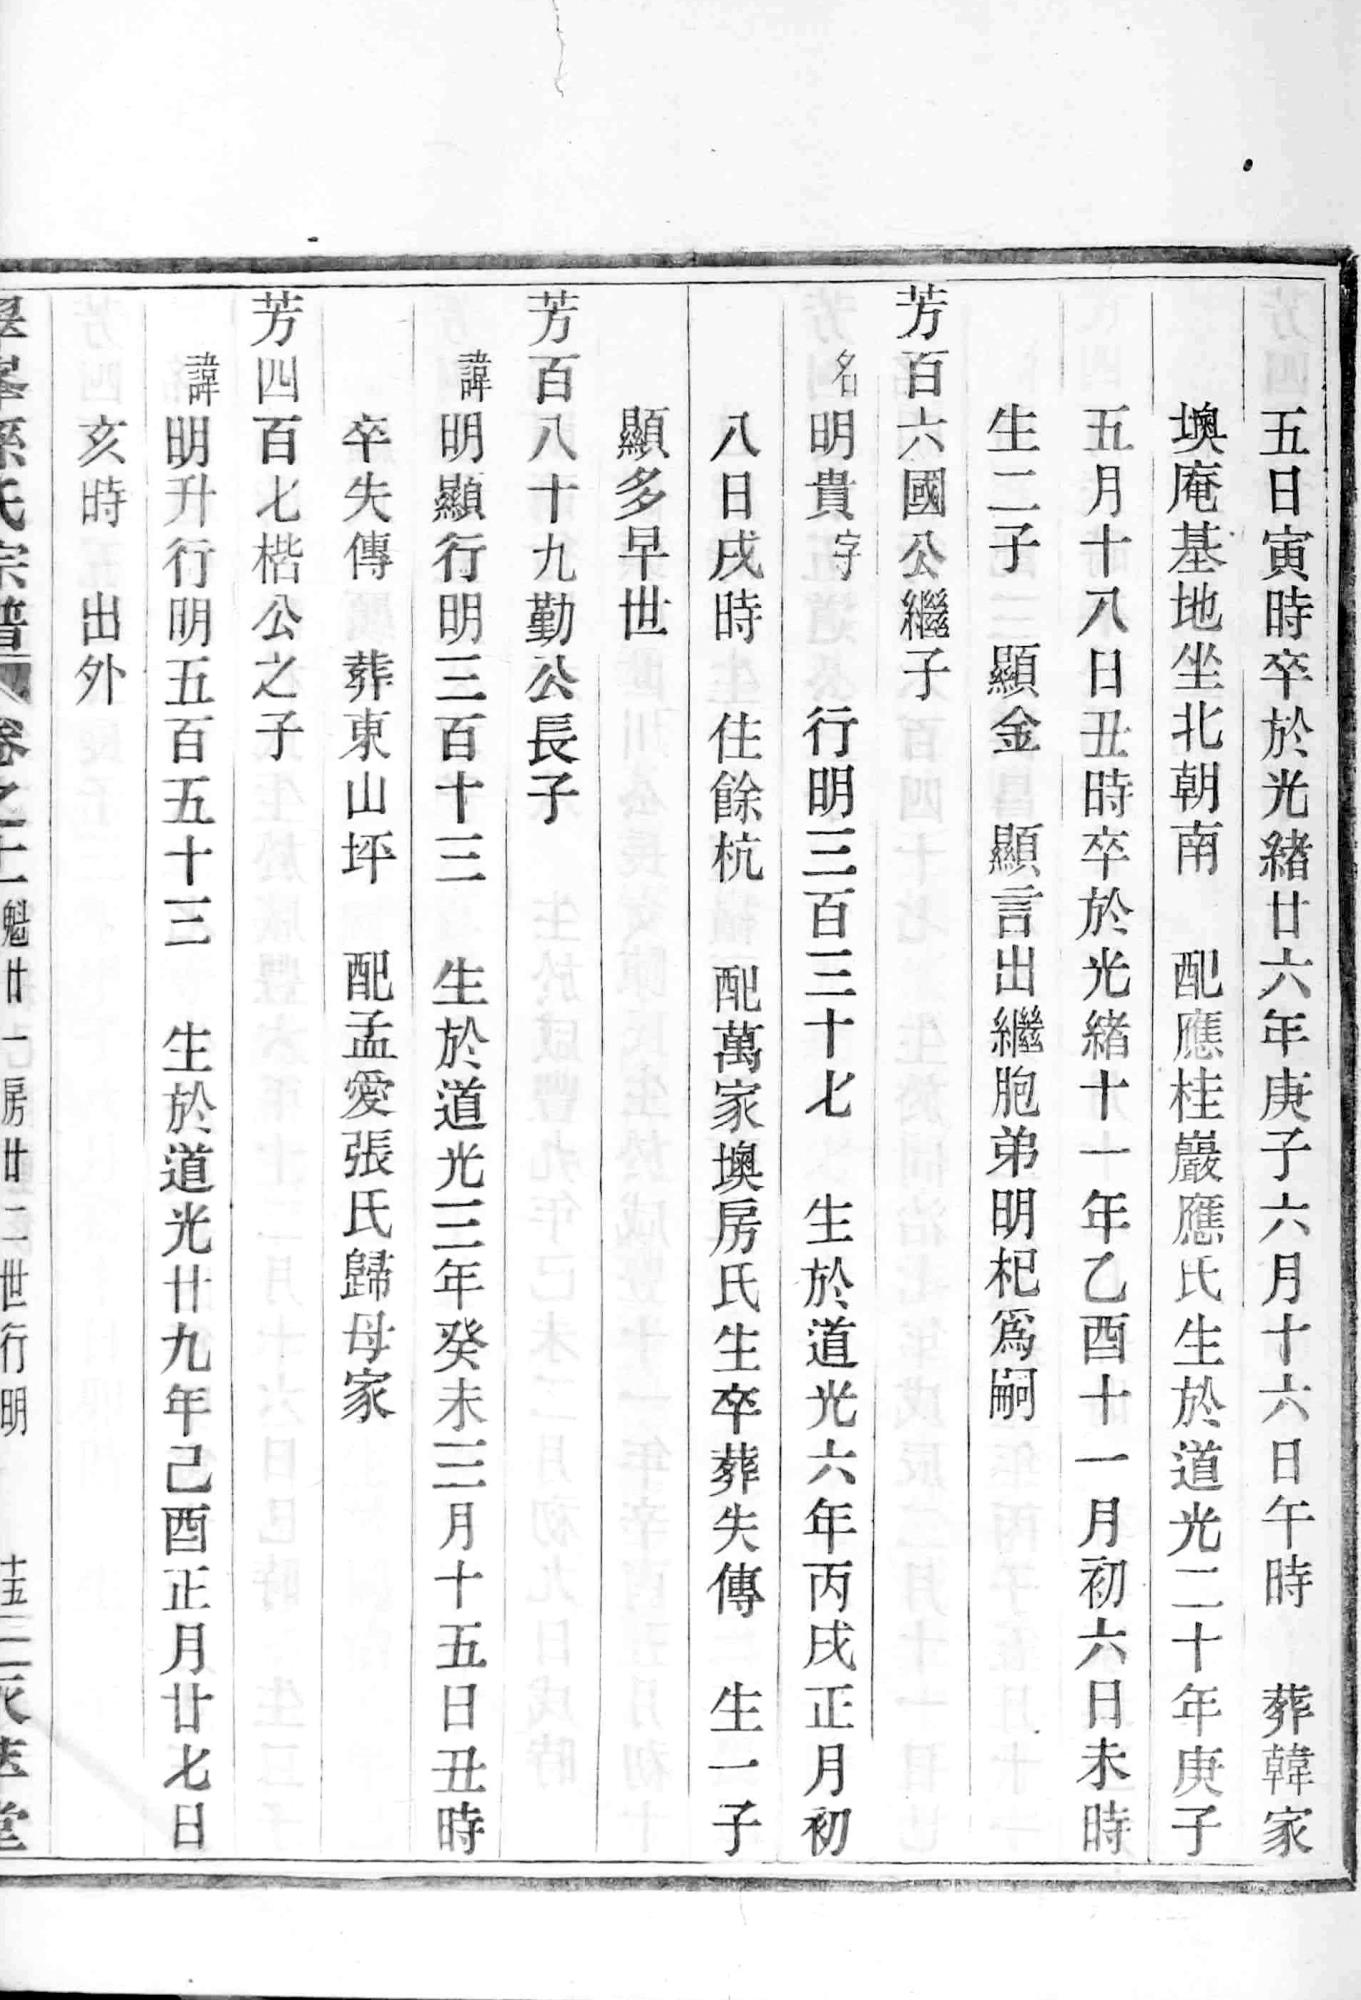 五日寅時卒於光緒廿六年庚子六月十六日午時　葬韓家
墺庵基地坐北朝南　配應桂巖應氏生於道光二十年庚子
五月十八日丑時卒於光緒十一年乙酉十一月初六日未時
生二子　顯金　顯言出繼胞弟明杞爲嗣
芳百六國公繼子
名明貴字　行明三百三十七　生於道光六年丙戌正月初
八日戌時　住餘杭　配萬家墺房氏生卒葬失傳　生一子
顯多早世
芳百八十九勤公長子
諱明顯行明三百十三　生於道光三年癸未三月十五日丑時
卒失傳　葬東山坪　配孟愛張氏歸母家
芳四百七楷公之子
諱明升行明五百五十三　生於道光廿九年己酉正月廿七日
亥時　出外
氏宗譜　卷之十　魁廿一房廿二世行明　十五　堂